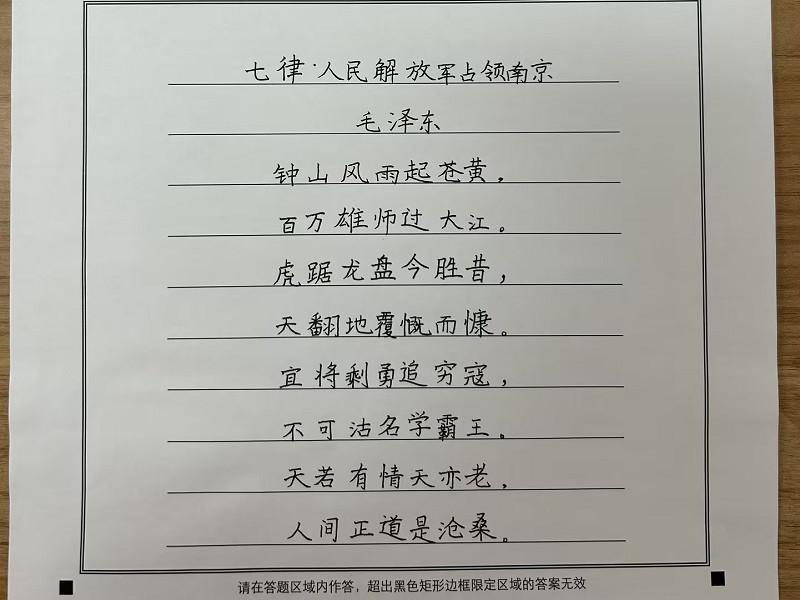 七律·人民解放军占领南京
毛泽东
钟山风雨起苍黄，
百万雄师过大江。
虎踞龙盘今胜昔，
天翻地覆慨而慷。
宜将剩勇追穷寇，
不可沽名学霸王。
天若有情天亦老，
人间正道是沧桑。
请在答题区域内作答，超出黑色矩形边框限定区域的答案无效